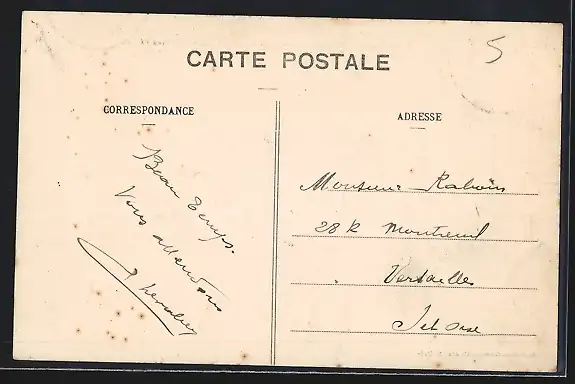 CARTE POSTALE
5
CORRESPONDANCE
Beau temps.
Vous attendons
ADRESSE
Monsieur Rabouin
28 R Montreuil
Versailles
S et Oise